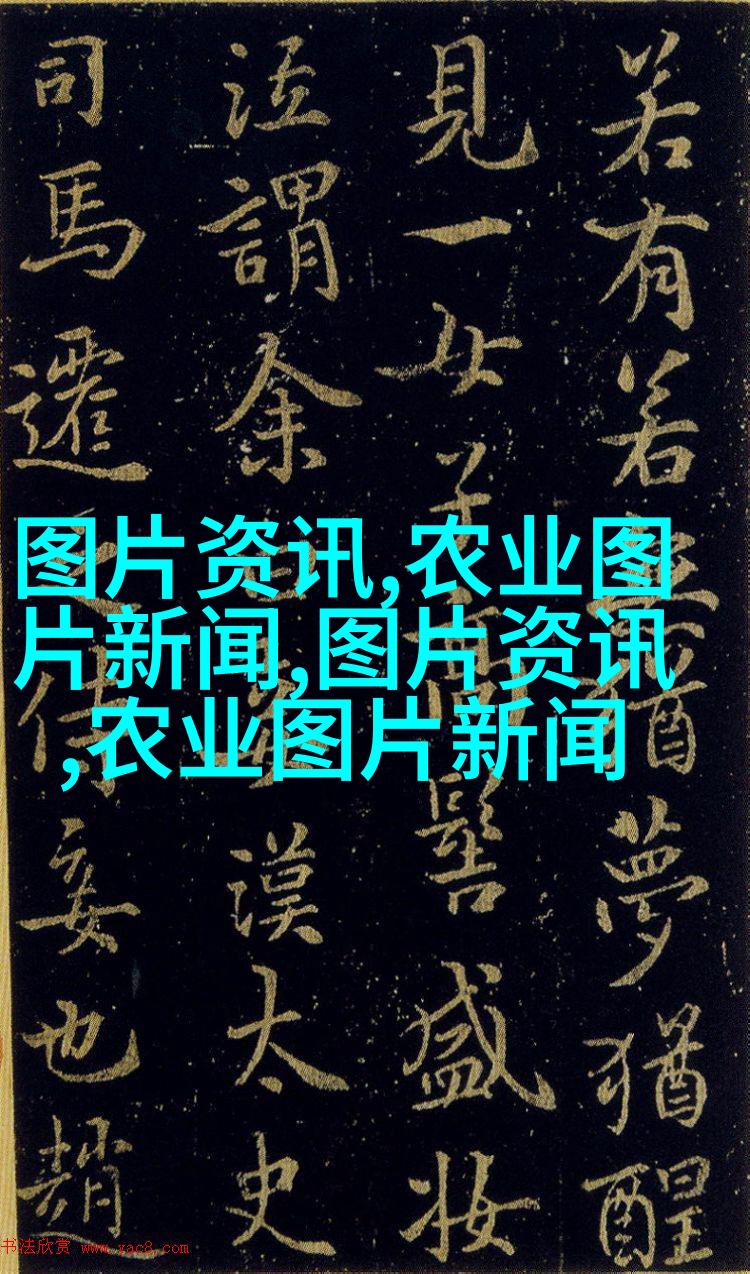 若有若無猶夢猶醒
見一女子高髻盛妝
泣謂余曰妾漢太史
司馬遷之侍妾也趙
图片资讯,农业图
片新闻,图片资讯
,农业图片新闻
书法欣赏 www.yac8.com